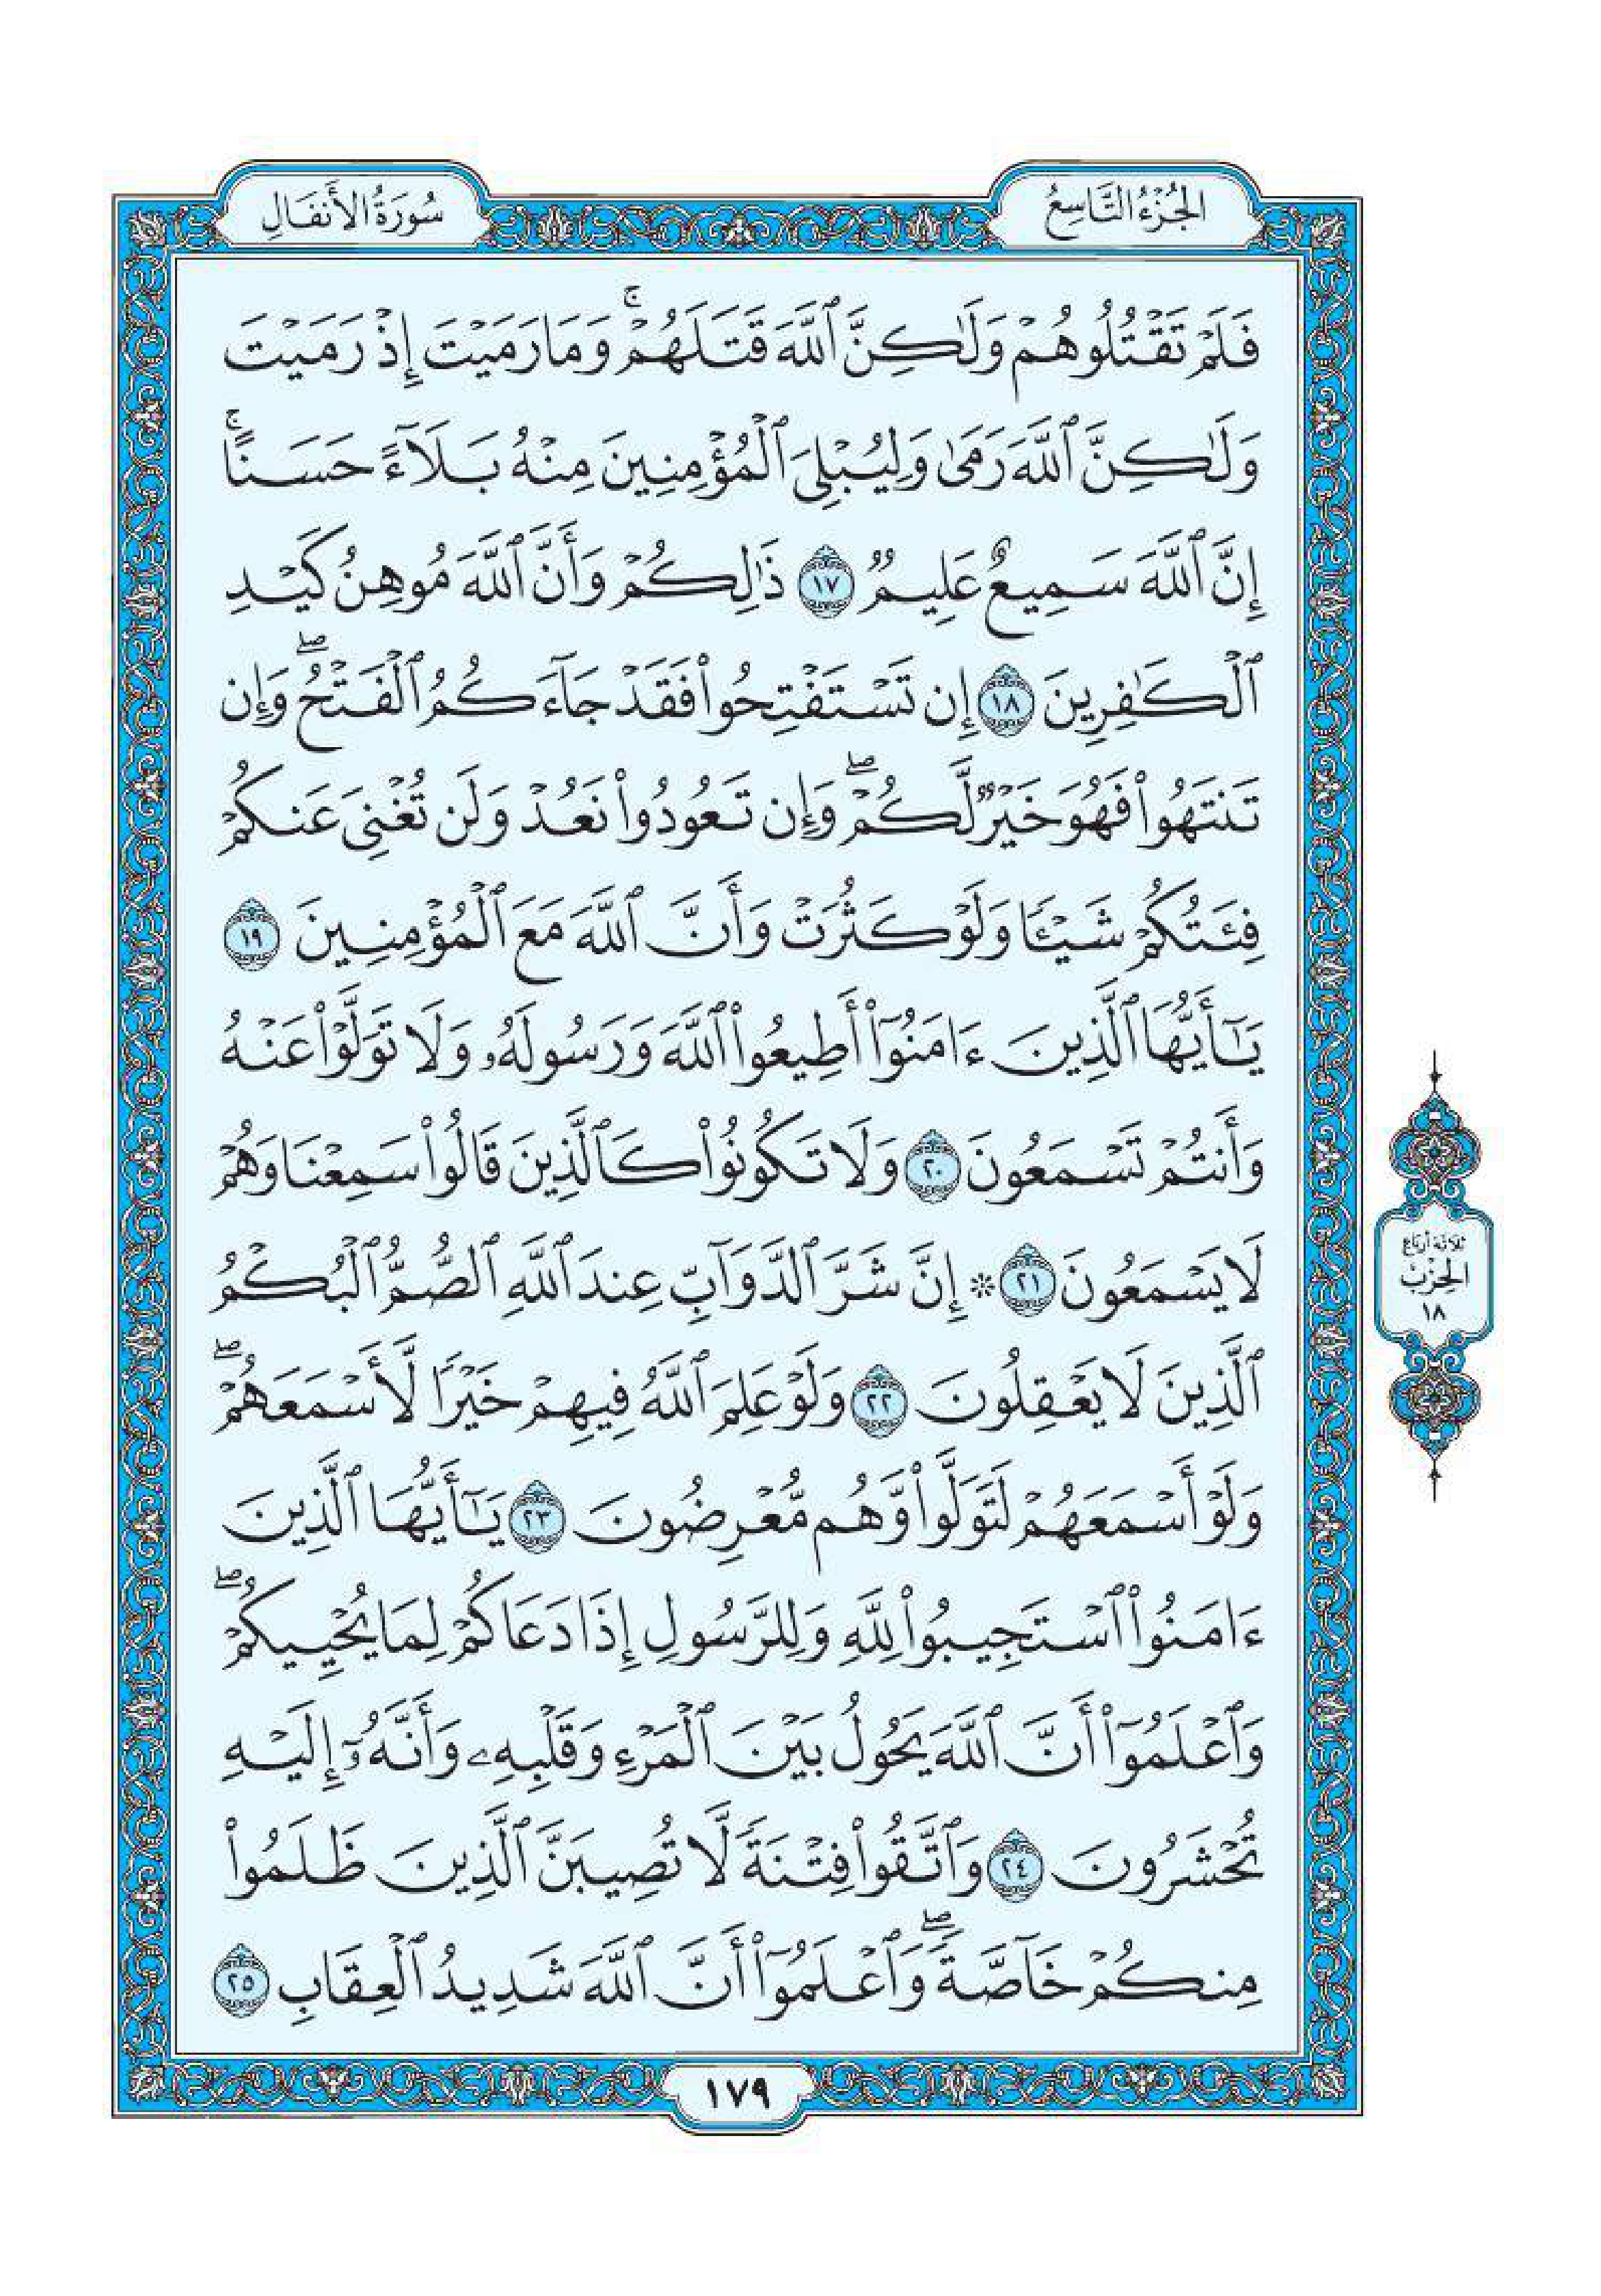 الجُزْءُ التَّاسِعُ
سُورَةُ الأَنفَالِ
فَلَمْ تَقْتُلُوهُمْ وَلَٰكِنَّ ٱللَّهَ قَتَلَهُمْۚ وَمَا رَمَيْتَ إِذْ رَمَيْتَ
وَلَٰكِنَّ ٱللَّهَ رَمَىٰ وَلِيُبْلِيَ ٱلْمُؤْمِنِينَ مِنْهُ بَلَآءً حَسَنًاۚ
إِنَّ ٱللَّهَ سَمِيعٌ عَلِيمٌ ١٧ ذَٰلِكُمْ وَأَنَّ ٱللَّهَ مُوهِنُ كَيْدِ
ٱلْكَٰفِرِينَ ١٨ إِن تَسْتَفْتِحُوا۟ فَقَدْ جَآءَكُمُ ٱلْفَتْحُۖ وَإِن
تَنتَهُوا۟ فَهُوَ خَيْرٌ لَّكُمْۖ وَإِن تَعُودُوا۟ نَعُدْ وَلَن تُغْنِيَ عَنكُمْ
فِئَتُكُمْ شَيْـًٔا وَلَوْ كَثُرَتْ وَأَنَّ ٱللَّهَ مَعَ ٱلْمُؤْمِنِينَ ١٩
يَٰٓأَيُّهَا ٱلَّذِينَ ءَامَنُوٓا۟ أَطِيعُوا۟ ٱللَّهَ وَرَسُولَهُۥ وَلَا تَوَلَّوْا۟ عَنْهُ
وَأَنتُمْ تَسْمَعُونَ ٢٠ وَلَا تَكُونُوا۟ كَٱلَّذِينَ قَالُوا۟ سَمِعْنَا وَهُمْ
لَا يَسْمَعُونَ ٢١ ۞ إِنَّ شَرَّ ٱلدَّوَآبِّ عِندَ ٱللَّهِ ٱلصُّمُّ ٱلْبُكْمُ
ٱلَّذِينَ لَا يَعْقِلُونَ ٢٢ وَلَوْ عَلِمَ ٱللَّهُ فِيهِمْ خَيْرًا لَّأَسْمَعَهُمْۖ
وَلَوْ أَسْمَعَهُمْ لَتَوَلَّوا۟ وَّهُم مُّعْرِضُونَ ٢٣ يَٰٓأَيُّهَا ٱلَّذِينَ
ءَامَنُوا۟ ٱسْتَجِيبُوا۟ لِلَّهِ وَلِلرَّسُولِ إِذَا دَعَاكُمْ لِمَا يُحْيِيكُمْۖ
وَٱعْلَمُوٓا۟ أَنَّ ٱللَّهَ يَحُولُ بَيْنَ ٱلْمَرْءِ وَقَلْبِهِۦ وَأَنَّهُۥٓ إِلَيْهِ
تُحْشَرُونَ ٢٤ وَٱتَّقُوا۟ فِتْنَةً لَّا تُصِيبَنَّ ٱلَّذِينَ ظَلَمُوا۟
مِنكُمْ خَآصَّةًۖ وَٱعْلَمُوٓا۟ أَنَّ ٱللَّهَ شَدِيدُ ٱلْعِقَابِ ٢٥
ثلاثة أرباع
الحِزْبُ
١٨
١٧٩